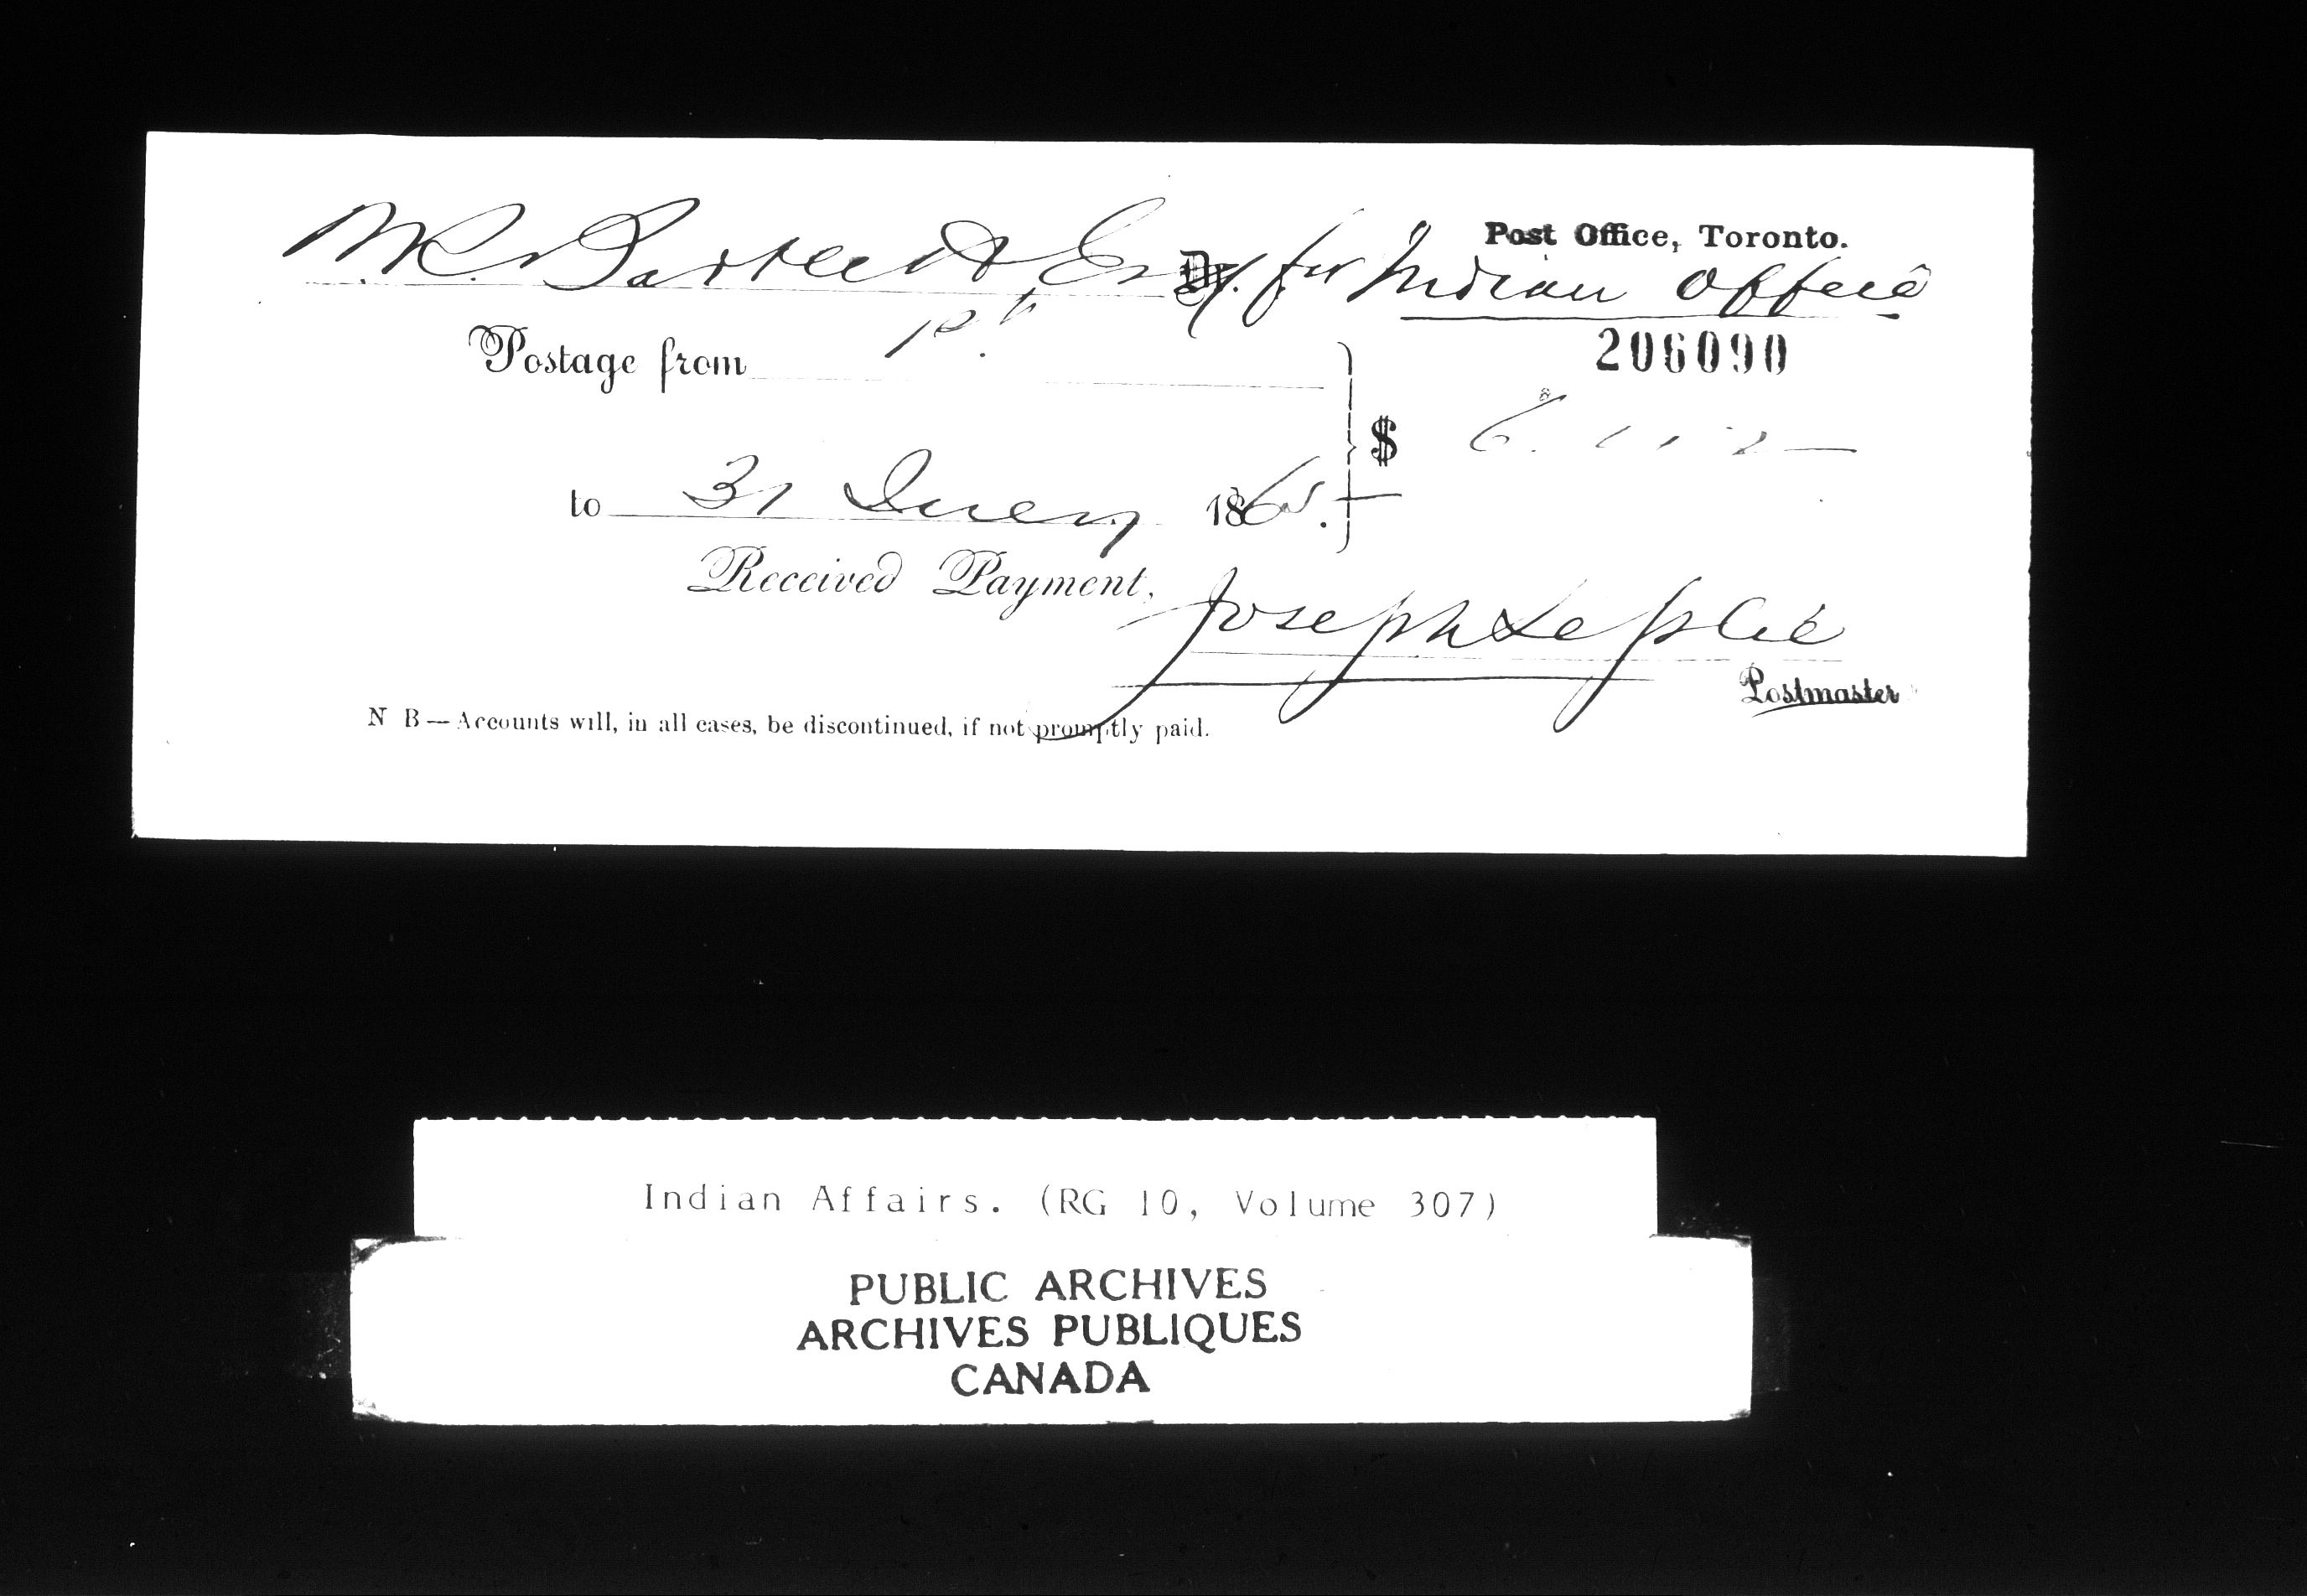 Post Office, Toronto.
W. R. Bartlett Esqr. for Indian Office
Dr.
206090
Postage from 1st
$ 6.
to 31 1865.
Received Payment,
Joseph Leslie
Postmaster
N B — Accounts will, in all cases, be discontinued, if not promptly paid.
Indian Affairs. (RG 10, Volume 307)
PUBLIC ARCHIVES
ARCHIVES PUBLIQUES
CANADA